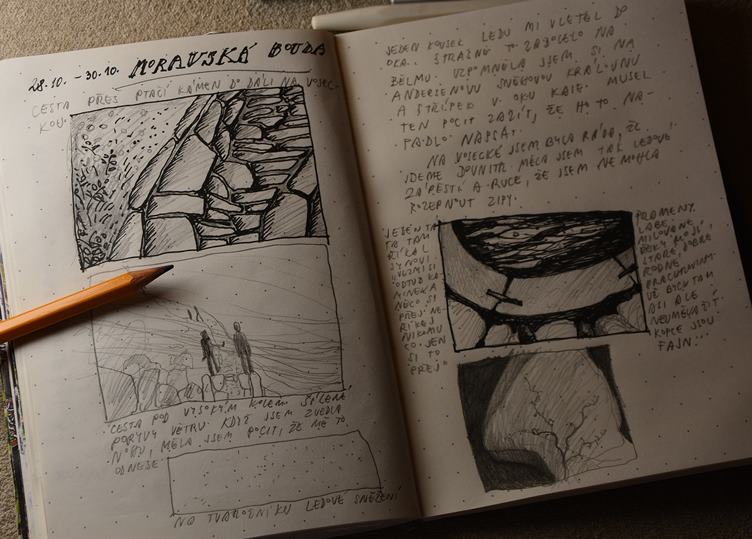 28.10. - 30.10. MORAVSKÁ BOUDA
CESTA PŘES PTAČÍ KÁMEN DO DÁLI NA VOSEC-
KOU.
CESTA POD VYSOKÝM KOLEM. ŠÍLENÉ
PORYVY VĚTRU. KDYŽ JSEM ZVEDLA
NOHU, MĚLA JSEM POCIT, ŽE MĚ TO
ODNESE.
NA TVAROŽNÍKU LEDOVÉ SNĚŽENÍ
JEDEN KOUSEK LEDU MI VLETĚL DO
OKA. STRAŠNĚ TO ZABOLELO NA
BĚLMU. VZPOMNĚLA JSEM SI NA
ANDERSENOVU SNĚHOVOU KRÁLOVNU
A STŘÍPEK V OKU KAJE. MUSEL
TEN POCIT ZAŽÍT, ŽE HO TO NA-
PADLO NAPSAT.
NA VOSECKÉ JSEM BYLA RÁDA, ŽE
JDEME DOVNITŘ. MĚLA JSEM TAK LEDOVÉ
ZÁPĚSTÍ A RUCE, ŽE JSEM NEMOHLA
ROZEPNOUT ZIPY.
JEDEN TÁ-
TA TAM
ŘÍKAL
SYNOVI
ODTUD KA-
MÍNEK A
NĚCO SI
PŘEJ. NE-
ŘÍKEJ
NIKOMU
CO JEN
SI TO
PŘEJ
PRAMENY
LABE,
MILOVANÉ
ŘEKY MOJÍ
STARÉ, DOBRÉ
RODNÉ.
UŽ BYCH TAM
ASI ALE
KOPCE JSOU
FAJN...